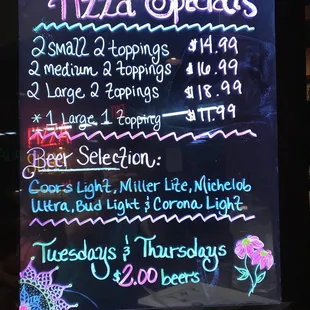 Pizza Specials
2 Small 2 toppings $14.99
2 medium 2 toppings $16.99
2 Large 2 toppings $18.99
* 1 Large, 1 Topping $11.99
PIZZA
Beer Selection:
Coors Light, Miller Lite, Michelob
Ultra, Bud Light & Corona Light
Tuesdays & Thursdays
$2.00 beers